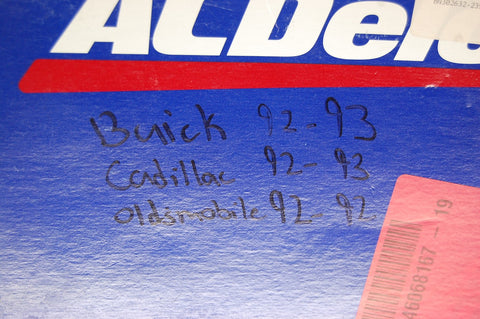 ACDelco
Buick 92-93
Cadillac 92-93
Oldsmobile 92-92
46068167 - 19